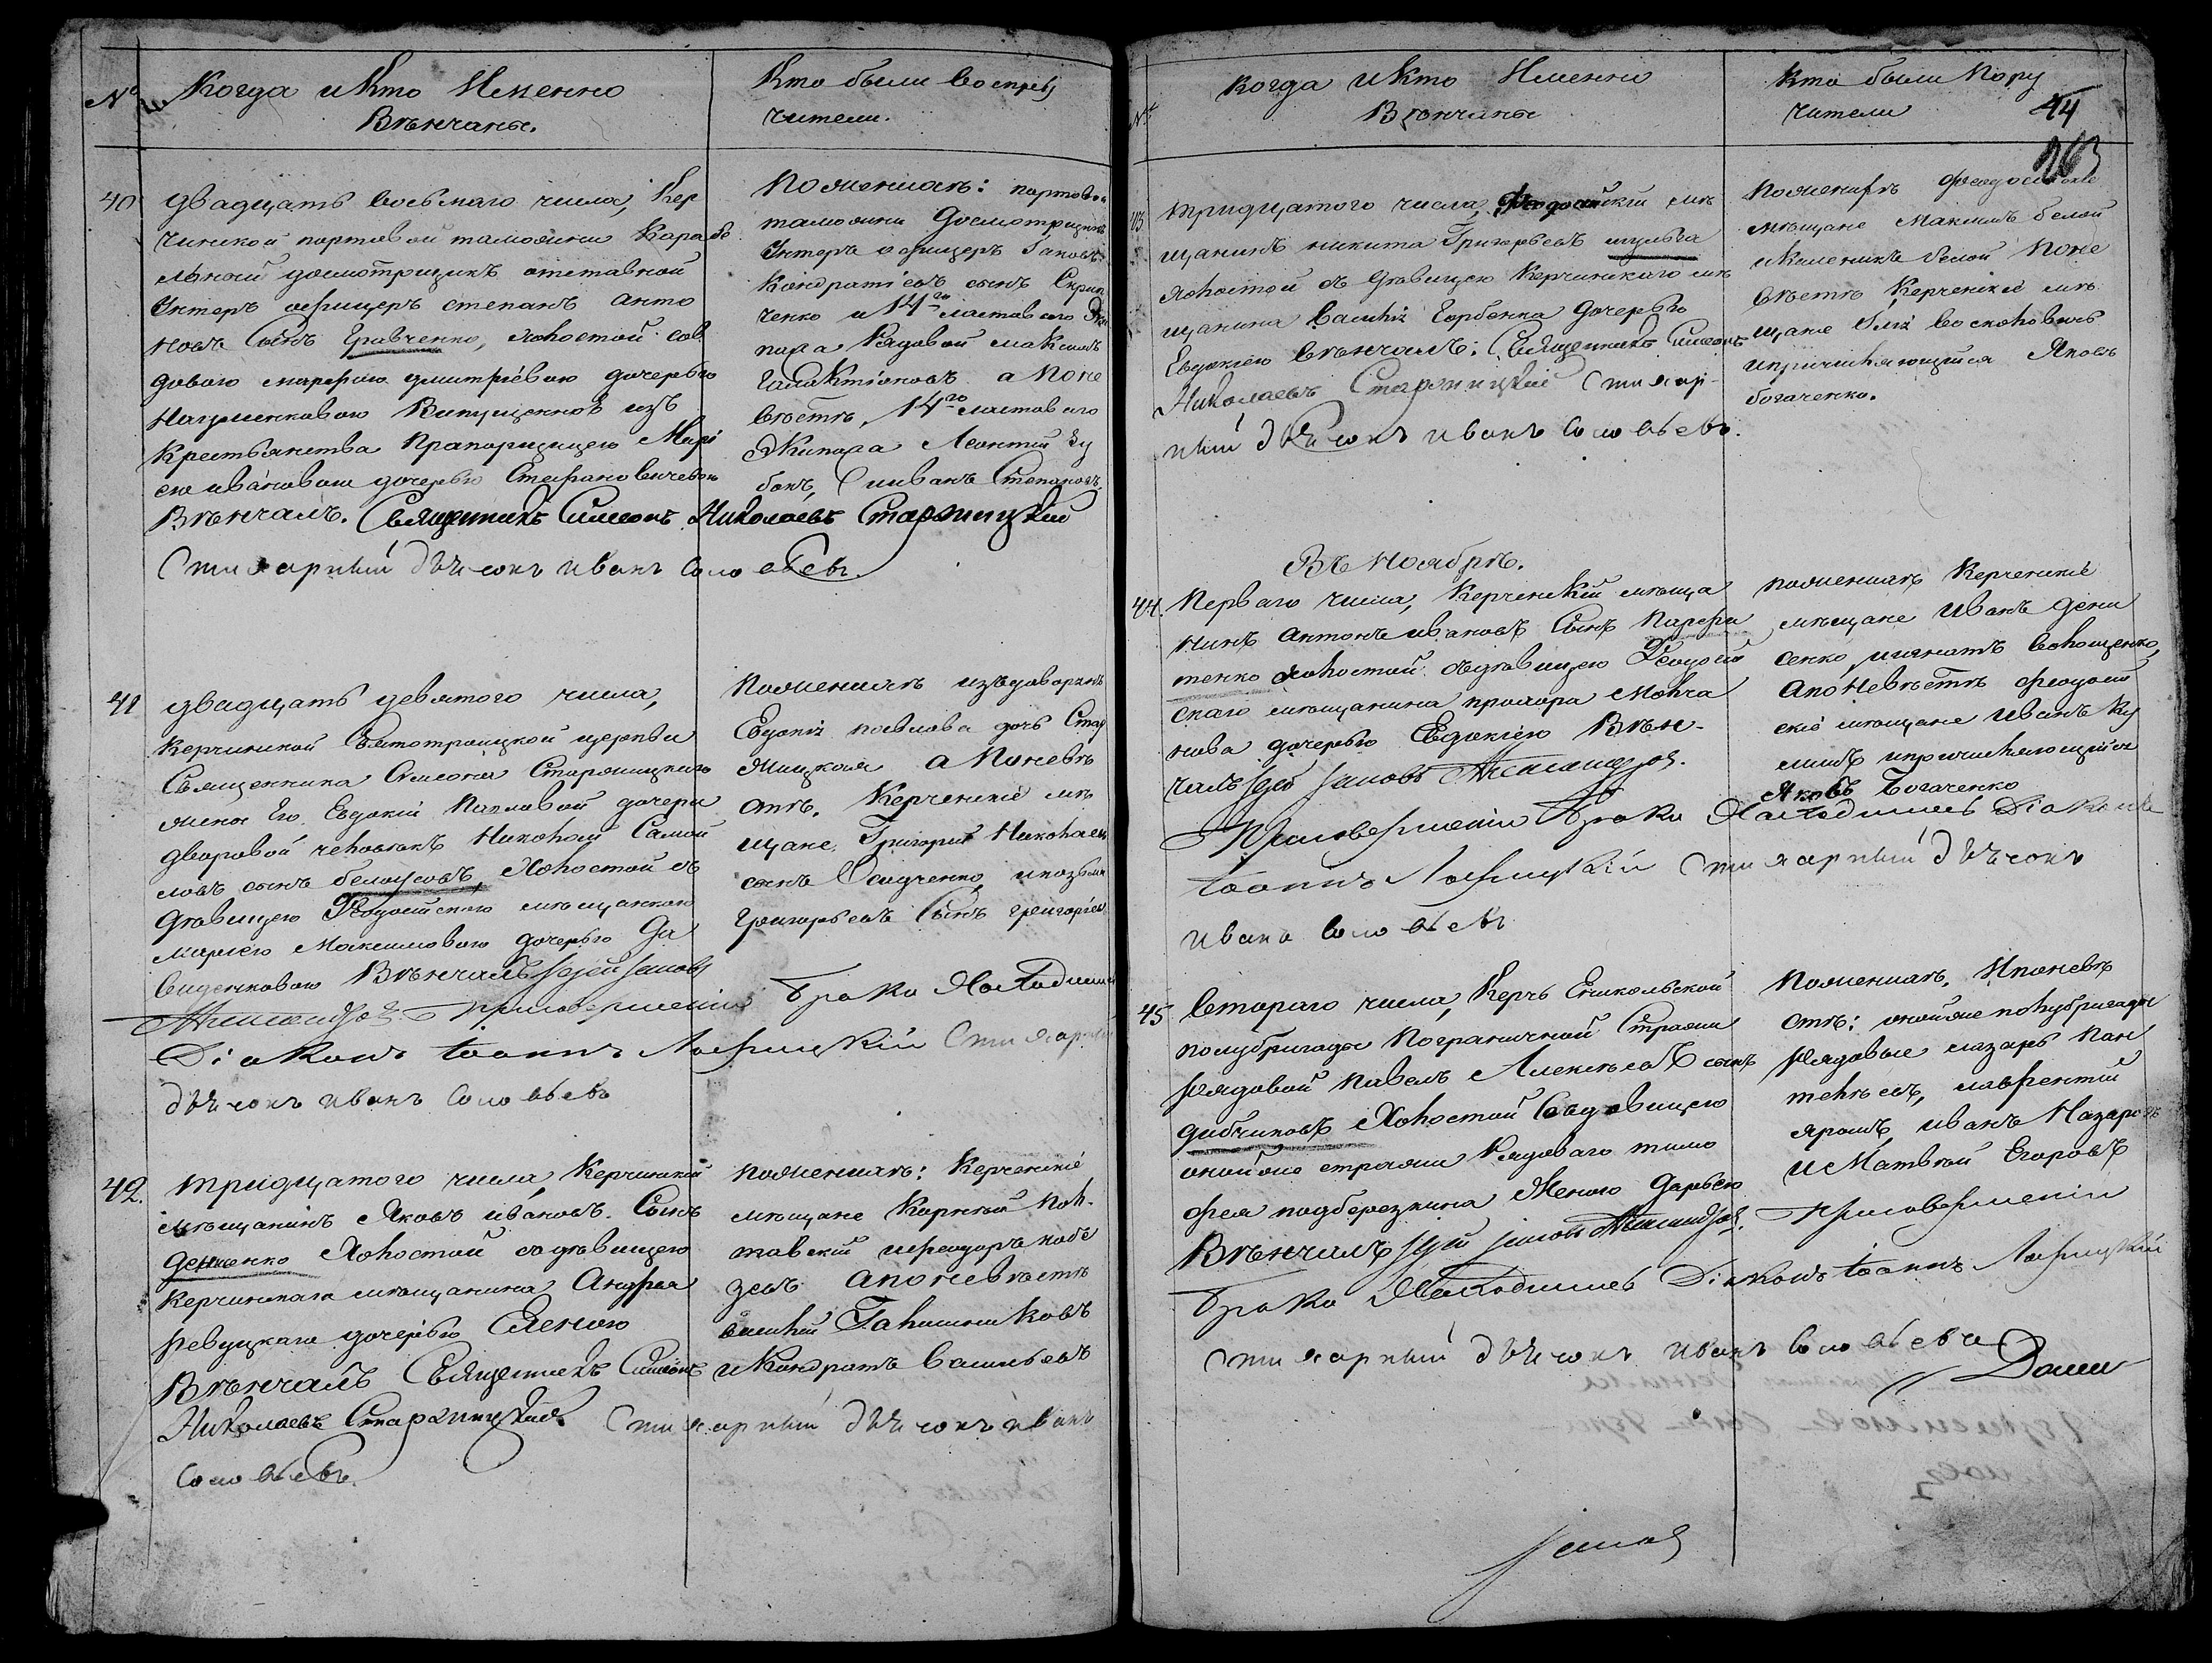 №
Когда и Кто Именно
Вѣнчаны.
Кто были Воспрі
чители.
40
двадцать восьмаго числа, Кер
чинской портовой таможни Карабе
льной досмотрщикъ отставной
Унтеръ офицеръ степанъ анто
новъ Сынъ Кравченко, холостой со в
довою марфою дмитріевою дочерью
Нагрименковою Випущенной изъ
крестьянства Прапорщицею Марі
ею ивановою дочерью Стефановичевою
Вѣнчалъ. Священникъ Симеонъ Николаевъ Старжицкій
Стихарный дьячокъ иванъ соловьевъ.
Пожениху: портовой
таможни досмотрщикъ
Унтеръ офицеръ Іаковъ
Кондратіевъ сынъ Скрип
ченко и 14го ластоваго Эки
пажа Рядовой Максимъ
Галактіоновъ а поне
вѣстѣ, 14го ластоваго
Экипажа Леонтій Зу
бокъ, и иванъ Степановъ.
41
двадцать девятого числа,
Керчинской Святотроицкой церкви
Священника Симеона Старжицкаго
жены Его Евдокіи Павловой дочери
дворовой человѣкъ Николай Самой
ловъ сынъ белоусовъ, Холостой съ
дѣвицею Феодосійскою мѣщанкою
маріею Максимовою дочерью Да
виденковою Вѣнчалъ
Присовершеніи Брака Находился
Діаконъ Іоаннъ Лофицкій Стихарный
дьячокъ иванъ соловьевъ
Пожениху изъдворянъ
Евдокія павлова дочь Стар
жицкая а Поневѣ
стѣ. Керченскіе мѣ
щане, Григорій Николаевъ
сынъ Сидченко, и козьма
григорьевъ Сынъ григорьев
42.
тридцатого числа, Керчинскій
мѣщанинъ Яковъ ивановъ Сынъ
денженко Холостой содѣвицею
Керчинскаго мѣщанина Андрея
ревуцкаго дочерью Еленою
Вѣнчалъ Священникъ Симеонъ
Николаевъ Старжицкій. Стихарный дьячокъ иванъ
соловьевъ.
Пожениху: Керченскіе
мѣщане Корнѣй пол-
тавскій ифеодоръ кобе
децъ апоневѣстѣ
василій Галишниковъ
и Кондратъ Васильевъ
№
Когда и Кто Именно
Вѣнчаны
Кто были Пору
чители
44
263
43.
тридцатого числа, Феодосійскій мѣ
щанинъ никита Григорьевъ шульга
холостой съ дѣвицею Керчинскаго мѣ
щанина Василія Горбенка дочерью
Евдокіею Вѣнчалъ: Священникъ Симеонъ
Николаевъ Старжицкій Стихар-
ный дьячокъ иванъ соловьевъ.
пожениху феодосійскіе
мѣщане Максимъ белой
икалиникъ белой Поне
вѣстѣ Керченскіе мѣ
щане Илія восколовичъ
ипричисляющійся Яковъ
богаченко.
Въ Ноябрѣ.
44.
Перваго числа, Керченскій мѣща
нинъ Антонъ ивановъ Сынъ Парфи
ненко холостой съдѣвицею Феодосій
скаго мѣщанина прохора Молча
нова дочерью Евдокіею Вѣн-
чалъ
Присовершеніи Брака Находился Діаконъ
Іоаннъ Лофицкій Стихарный дьячокъ
иванъ соловьевъ
пожениху Керченскіе
мѣщане Иванъ дени
сенко, иигнатъ волощенко,
апоневѣстѣ феодосій
скіе мѣщане иванъ Ку
лишъ ипричисляющійся
Яковъ Богаченко
45
втораго числа, Керчь Еникольской
полубригады Пограничной Стражи
рядовой Павелъ Алексѣевъ сынъ
дибчиковъ Холостой Совдовицею
оной же стражи Рядоваго тимо
фея подберезкина Женою дарьею
Вѣнчалъ
Присовершеніи
Брака Находился Діаконъ Іоаннъ Лофицкій
Стихарный дьячокъ иванъ соловьевъ
Пожениху, Ипоневѣ
стѣ: онойже полубригады
Рядовые лазарь Пан
телѣевъ, лаврентій
ярошъ, иванъ Назаровъ
и Матвѣй Егоровъ